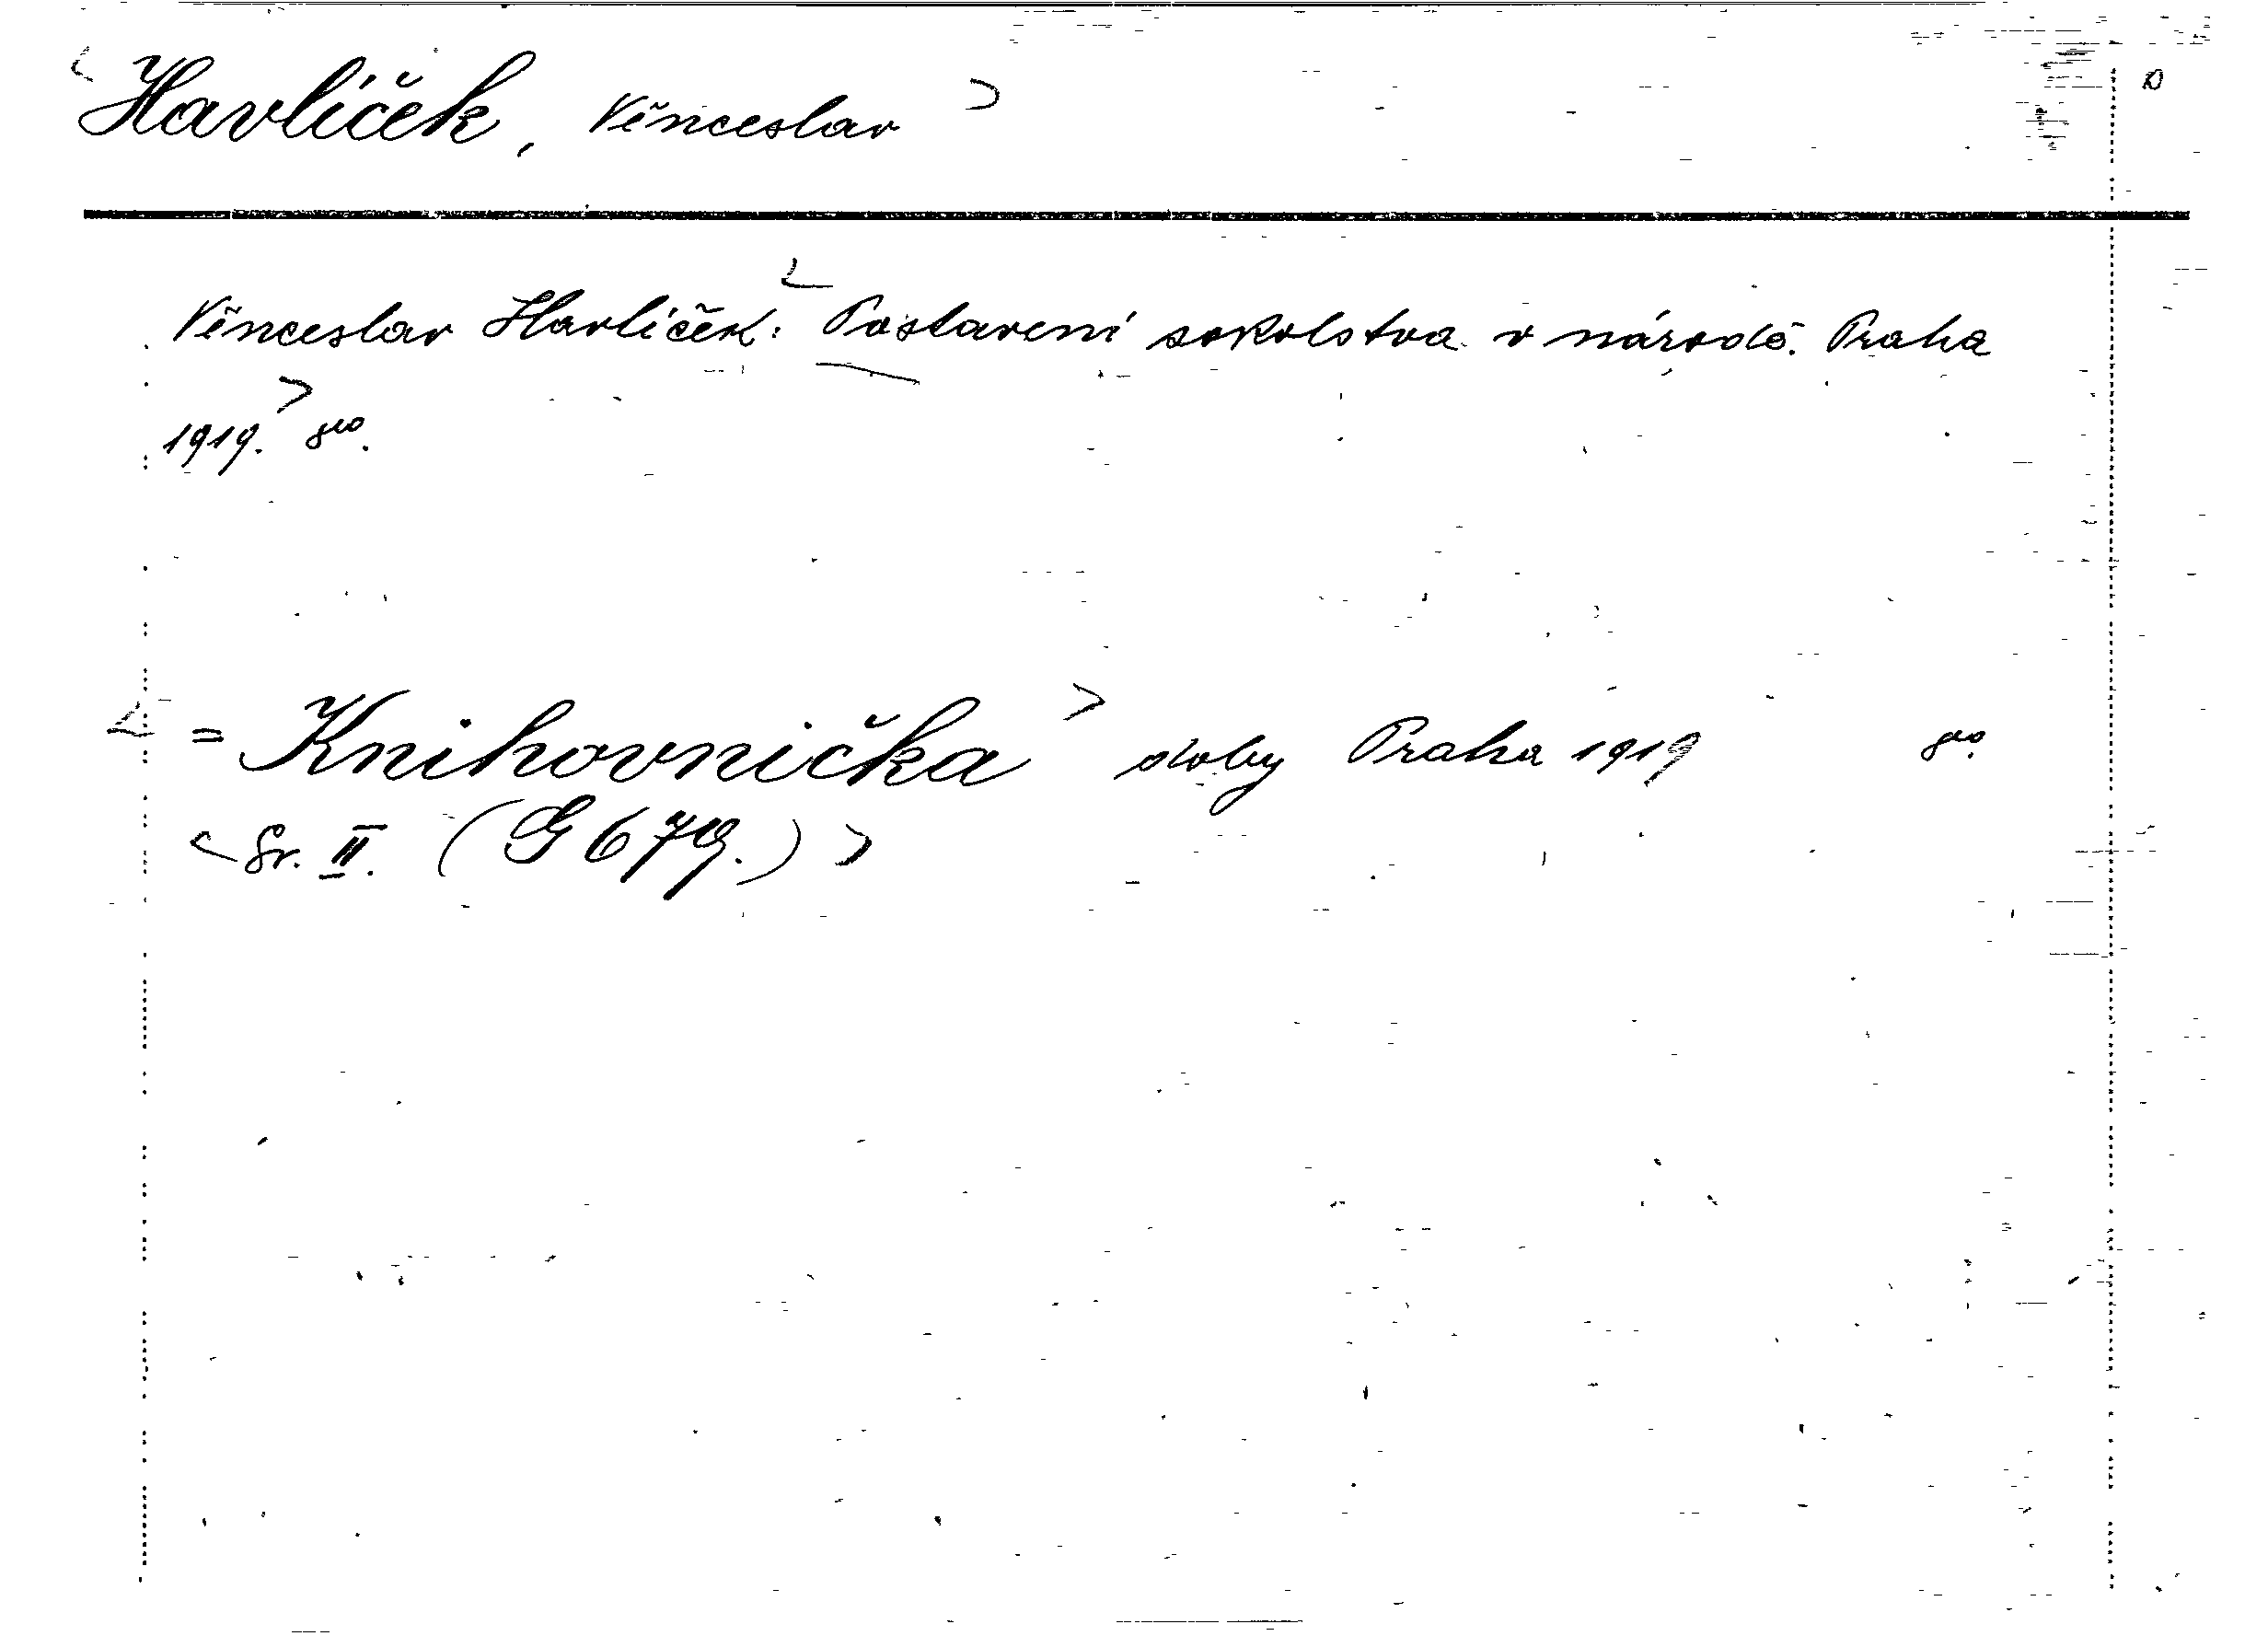 < Havlíček, Věnceslav >
Věnceslav Havlíček: < Postavení sokolstva v národě. Praha
1919. > 8vo.
< = Knihovnička > doby Praha 1919 8vo.
< Sv. II. (G 679.) >